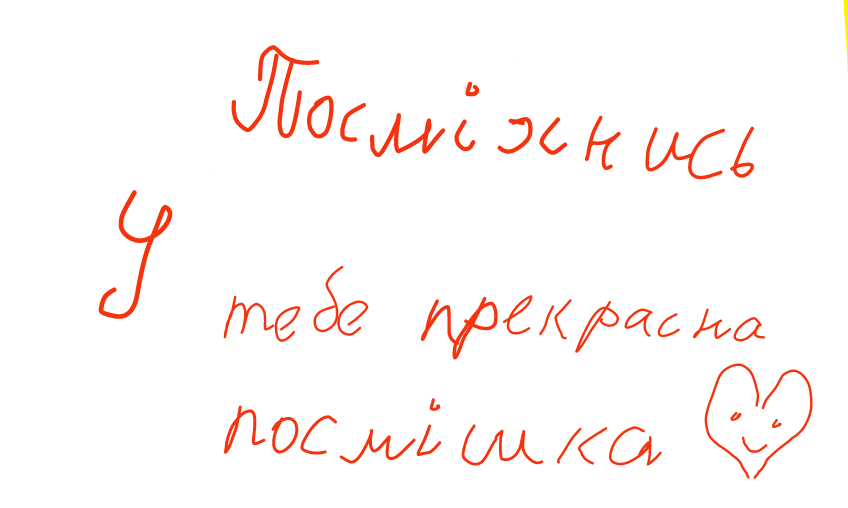 Посміхнись
У тебе прекрасна
посмішка